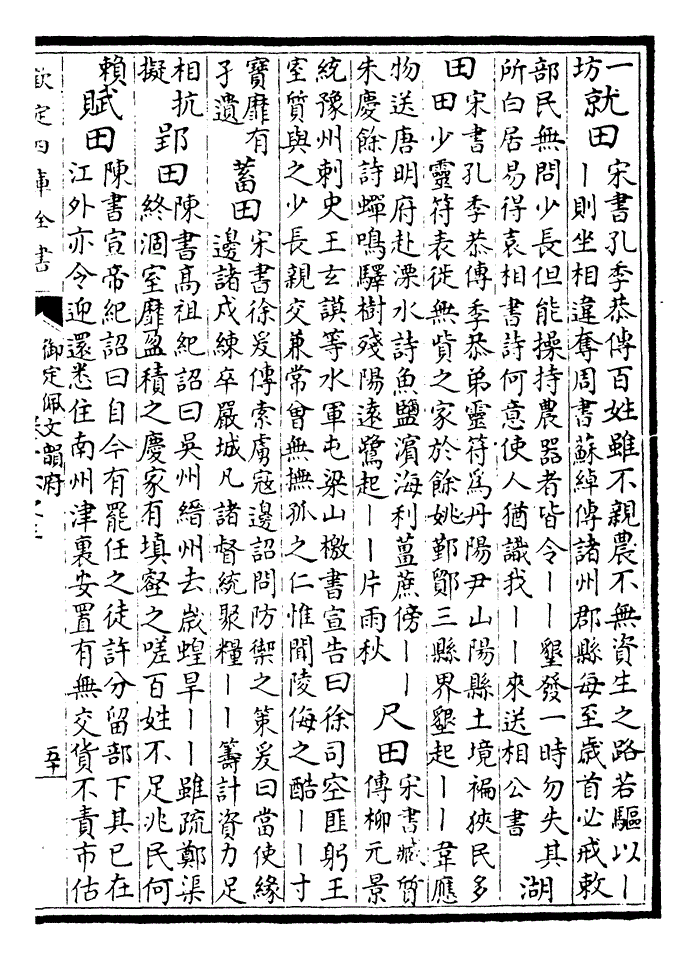 一
坊
就田
宋書孔季恭傳百姓雖不親農不無資生之路若驅以丨
丨則坐相違奪周書蘇綽傳諸州郡縣每至歲首必戒敕
部民無問少長但能操持農器者皆令丨丨墾發一時勿失其
所白居易得袁相書詩何意使人猶識我丨丨來送相公書
湖
田
宋書孔季恭傳季恭弟靈符為丹陽尹山陽縣土境褊狹民多
田少靈符表徙無貲之家於餘姚鄞鄮三縣界墾起丨丨韋應
物送唐明府赴溧水詩魚鹽濱海利薑蔗傍丨丨
朱慶餘詩蟬鳴驛樹殘陽遠鷺起丨丨片雨秋
尺田
宋書臧質
傳柳元景
統豫州刺史王玄謨等水軍屯梁山檄書宣告曰徐司空匪躬王
室質與之少長親交兼常曾無撫孤之仁惟聞陵侮之酷丨丨寸
寶靡有
孑遺
蓄田
宋書徐爰傳索虜寇邊詔問防禦之策爰曰當使緣
邊諸戍練卒嚴城凡諸督統聚糧丨丨籌計資力足
相抗
擬
郢田
陳書高祖紀詔曰吳州縉州去歲蝗旱丨丨雖疏鄭渠
終涸室靡盈積之慶家有填壑之嗟百姓不足兆民何
賴
賦田
陳書宣帝紀詔曰自今有罷任之徒許分留部下其已在
江外亦令迎還悉住南州津裏安置有無交貨不責市估
欽定四庫全書
御定佩文韻府
五十